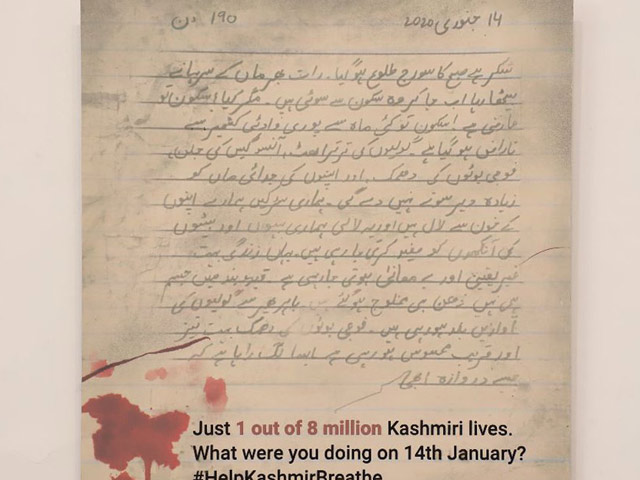 ۱۴ جنوری 2020 ۱۹۰ دن
شکر ہے صبح کا سورج طلوع ہو گیا۔ رات بھر ماں کے سرہانے
بیٹھا رہا اب جا کر وہ سکون سے سوئی ہیں۔ مگر کیا! سکون تو
عارضی ہے! سکون تو کئی ماہ سے پوری وادئی کشمیر سے
ناراض ہو گیا ہے۔ گولیوں کی تڑتڑاہٹ، آنسو گیس کی جلن،
فوجی بوٹوں کی دھمک اور اپنوں کی جدائی ماں کو
زیادہ دیر سونے نہیں دے گی۔ ہماری سڑکیں ہمارے اپنوں
کے خون سے لال ہیں اور یہ لالی ہماری اور بیٹیوں
کی آنکھوں کو سفید کرتی جا رہی ہیں۔ یہاں زندگی بہت
غیر یقینی اور بے معانی ہوتی جا رہی ہے۔ قید و بند میں جسم
ہی نہیں ذہن بھی مفلوج ہو گئے ہیں باہر پھر سے گولیوں کی
آوازیں بلند ہو رہی ہیں۔ فوجی بوٹوں کی دھمک بہت تیز
اور قریب محسوس ہو رہی ہے ایسا لگ رہا ہے کہ
جیسے دروازہ ابھی
Just 1 out of 8 million Kashmiri lives.
What were you doing on 14th January?
#HelpKashmirBreathe